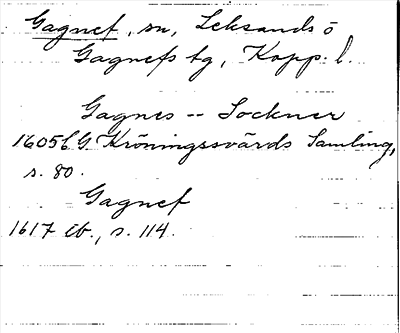 Gagnef, sn, Leksands ö
Gagnefs tg, Kopp. l.
Gagnes -- Sockner
1605 f. G. Kröningssvärds Samling,
s. 80.
Gagnef
1617 Cb., s. 114.